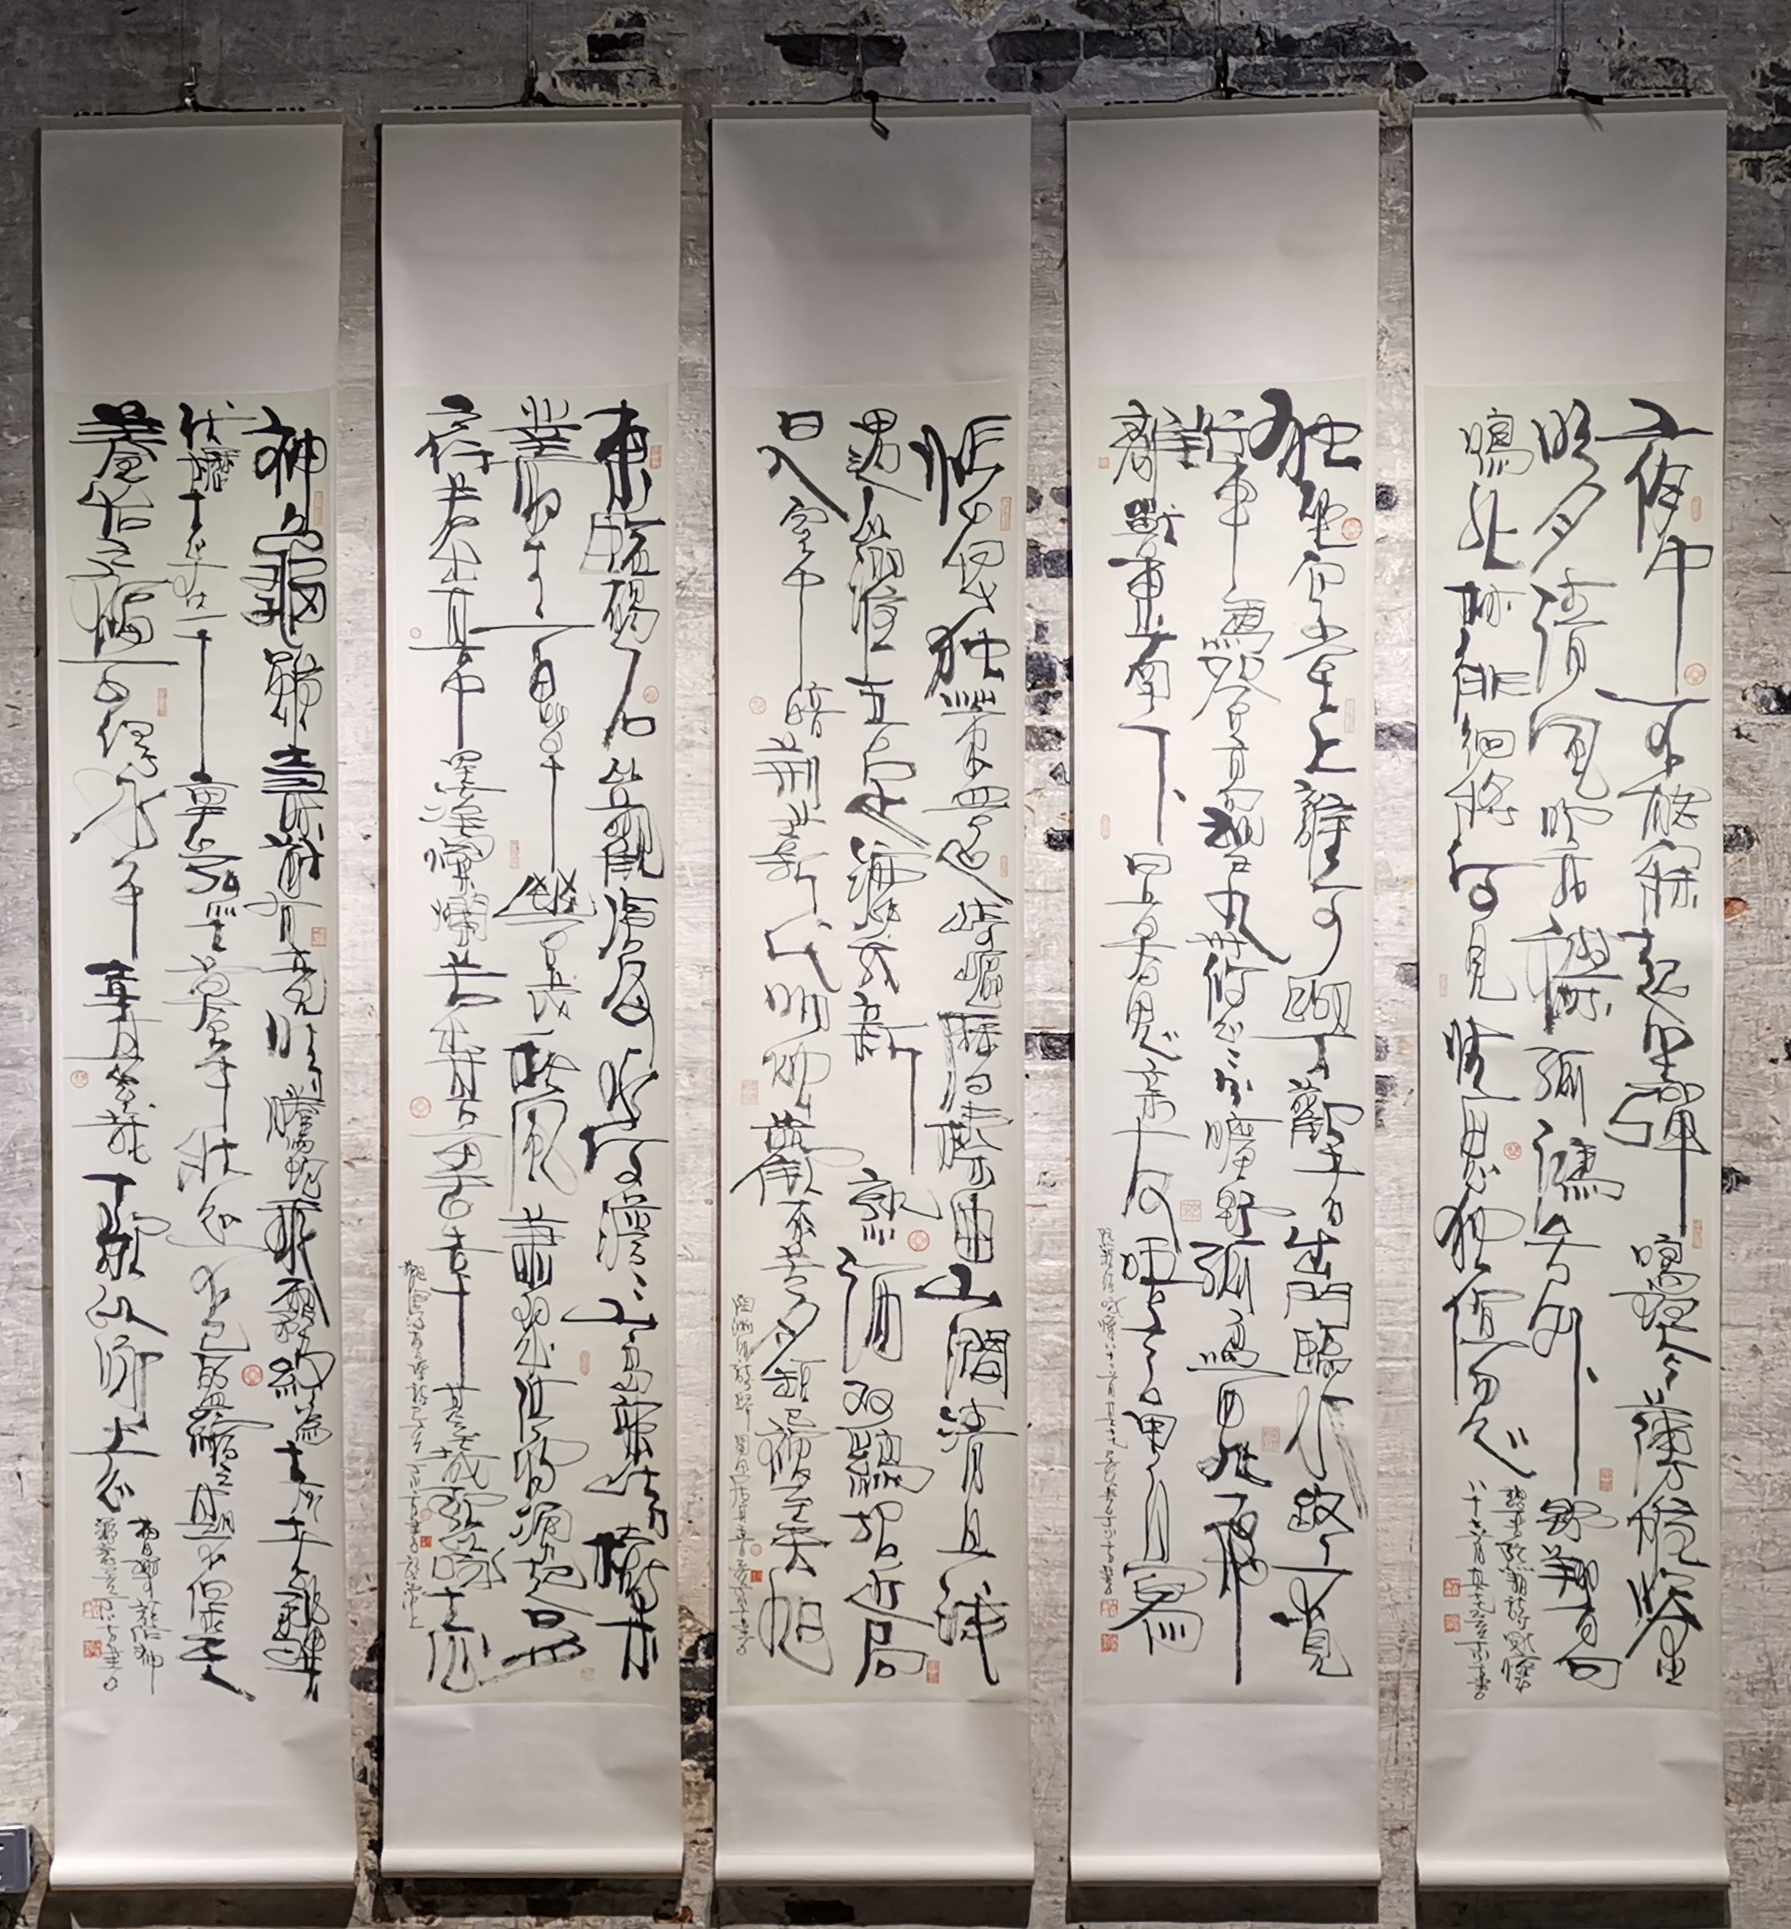 夜中不能寐起坐彈鳴琴薄帷鑒
明月清風吹我襟孤鴻号外野翔鳥
鳴北林徘徊將何見憂思独傷心
独坐空堂上誰可與歡者出門臨永路不見
行車馬登高望九州悠悠分曠野孤鳥西北飛
離獸東南下日暮思親友晤言用自寫
悵恨独策還崎嶇歷榛曲山澗清且淺
遇以濯吾足漉我新熟酒双雞招近局
日入室中暗荊薪代明燭歡來苦夕短已復至天旭
東臨碣石以觀滄海水何澹澹山島竦峙樹木
叢生百草豐茂秋風蕭瑟洪波湧起日月
之行若出其中星漢燦爛若出其里幸甚至哉歌以詠志
神龜雖壽猶有竟時騰蛇乘霧終為土灰老驥
伏櫪志在千里烈士暮年壯心不已盈縮之期不但在天
養怡之福可得永年幸甚至哉歌以詠志